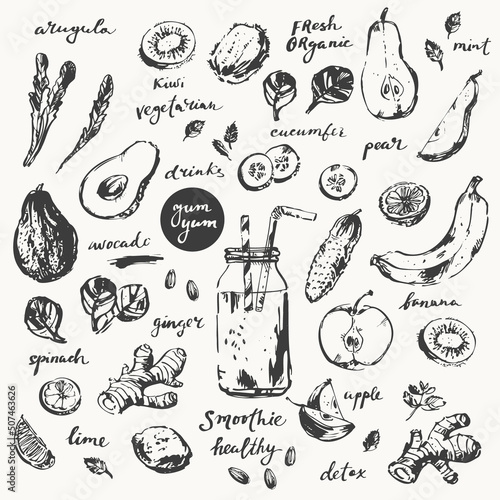 arugula
kiwi
FRESH
ORGANIC
mint
vegetarian
cucumber
pear
drinks
yum
yum
avocado
banana
ginger
spinach
apple
Smoothie
healthy
lime
detox
Adobe Stock | #507463626